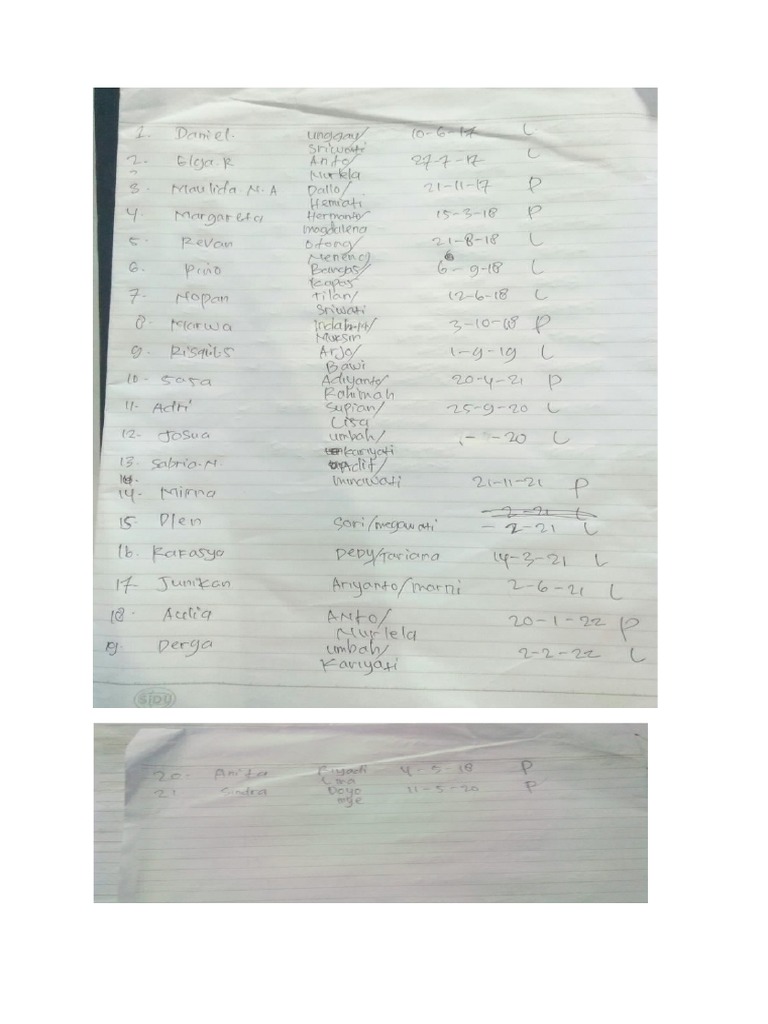 1. Daniel. unggau/ 10-6-17 L
Sriwati
2. Elga.R Anto/ 27-7-17 L
Nurlela
3. Maulida.N.A Dallo/ 21-11-17 P
Hemiati
4 Margareta Hermanto/ 15-3-18 P
magdalena
5. Revan 21-8-18 L
6. Pino 6-9-18 L
7. Nopan Tilan/ 12-6-18 L
Sriwati
8. Marwa 3-10-18 P
Muksin
9. Arjo/ 1-9-19 L
Bawi
10. Sasa Adiyanto/ 20-4-21 P
Rahimah
11. Adri Supian/ 25-9-20 L
Lisa
12. Josua umbah/ - -20 L
kariyati
13. Sabria.N. Adit/
14. Mirna 21-11-21 P
15. Dlen Sari/megawati - 2-21 L
16. Rafasya DEDY/Tariana 14-3-21 L
17 Junikan Ariyanto/marni 2-6-21 L
18. Aulia ANto/ 20-1-22 P
Nurlela
19. Derga umbah/ 2-2-22 L
Kariyati
SIDU
20. Anita Riyadi 4-5-18 P
21. Sandra Doyo 11-5-20 P